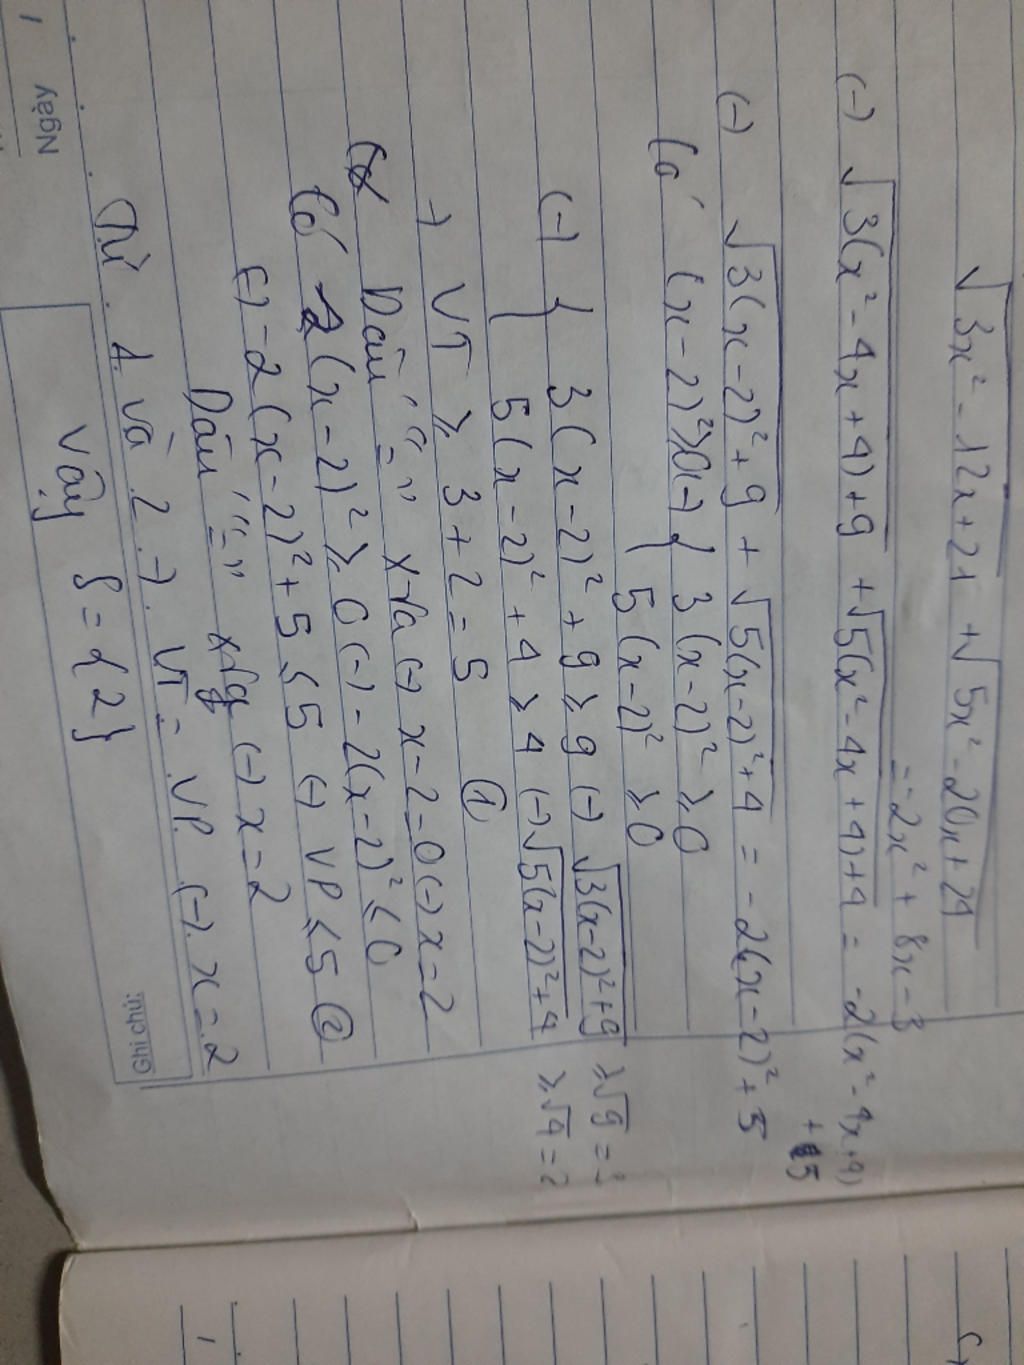 √3x² - 12x + 21 + √5x² - 20x + 24
= -2x² + 8x - 3
(-) √3(x² - 4x + 4) + 9 + √5(x² - 4x + 4) + 4 = -2(x² - 4x + 4)
+ 5
(-) √3(x - 2)² + 9 + √5(x - 2)² + 4 = -2(x - 2)² + 5
Có (x - 2)² ≥ 0 (-) { 3(x - 2)² ≥ 0
5(x - 2)² ≥ 0
(-) { 3(x - 2)² + 9 ≥ 9 (-) √3(x - 2)² + 9 ≥ √9 = 3
5(x - 2)² + 4 ≥ 4 (-) √5(x - 2)² + 4 ≥ √4 = 2
-) VT ≥ 3 + 2 = 5 (1)
Dấu "=" xra (-) x - 2 = 0 (-) x = 2
Có 2(x - 2)² ≥ 0 (-) -2(x - 2)² ≤ 0
(-) -2(x - 2)² + 5 ≤ 5 (-) VP ≤ 5 (2)
Dấu "=" xra (-) x = 2
Từ 1 và 2 -) VT = VP (-) x = 2
Vậy S = {2}
Ngày
Ghi chú: